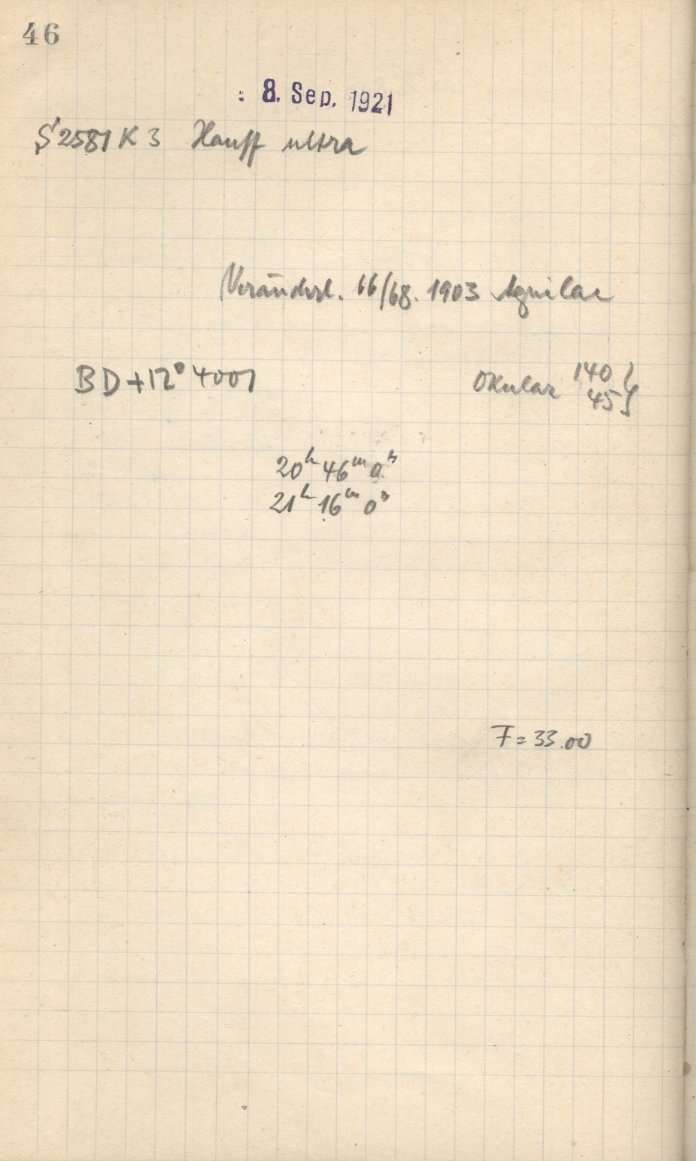 46
8. Sep. 1921
S 2581 K 3 Hauff ultra
Veränderl. 66/68. 1903 Aquilae
BD+12° 4007 Okular 140 }
45 }
20h 46m 0s
21h 16m 0s
F = 33.00